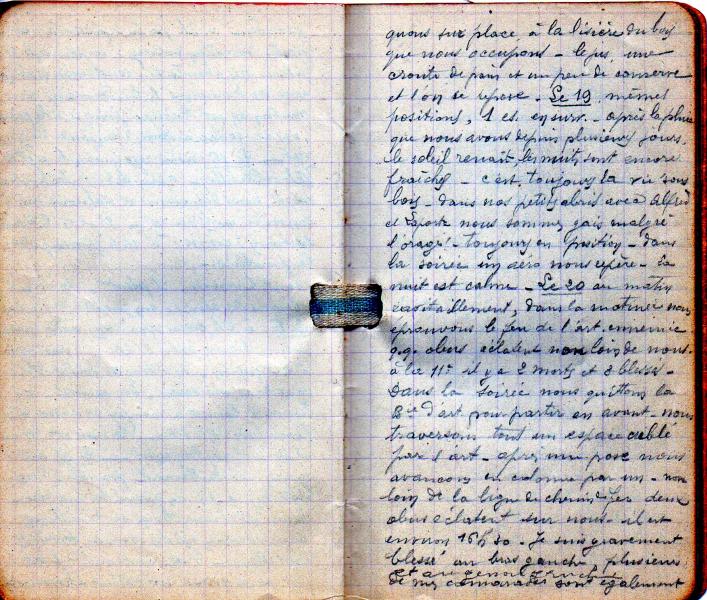 quons sur place, à la lisière du bois
que nous occupons - le jus, une
croute de pain et un peu de conserve
et l'on se repose - Le 19, mêmes
positions, 1 es. en surv. - après la pluie
que nous avons depuis plusieurs jours,
le soleil renaît, les nuits sont encore
fraîches - c'est toujours la vie sous
bois - dans nos petits abris avec Alfred
et Laporte nous sommes gais malgré
l'orage! - toujours en position - dans
la soirée un aéro nous repère - La
nuit est calme - Le 20 au matin
ravitaillement, dans la matinée nous
éprouvons le feu de l'art. ennemie
q.q. obus éclatent non loin de nous.
à la 11e il y a 2 morts et 3 blessés -
Dans la soirée nous quittons la
Bie d'art pour partir en avant - nous
traversons tout un espace criblé
par l'art - après une pose nous
avancons en colonne par un - non
loin de la ligne de chemin de fer deux
obus éclatent sur nous - il est
environ 16h30 - Je suis gravement
blessé au bras gauche plusieurs
et au genou
de mes camarades sont également